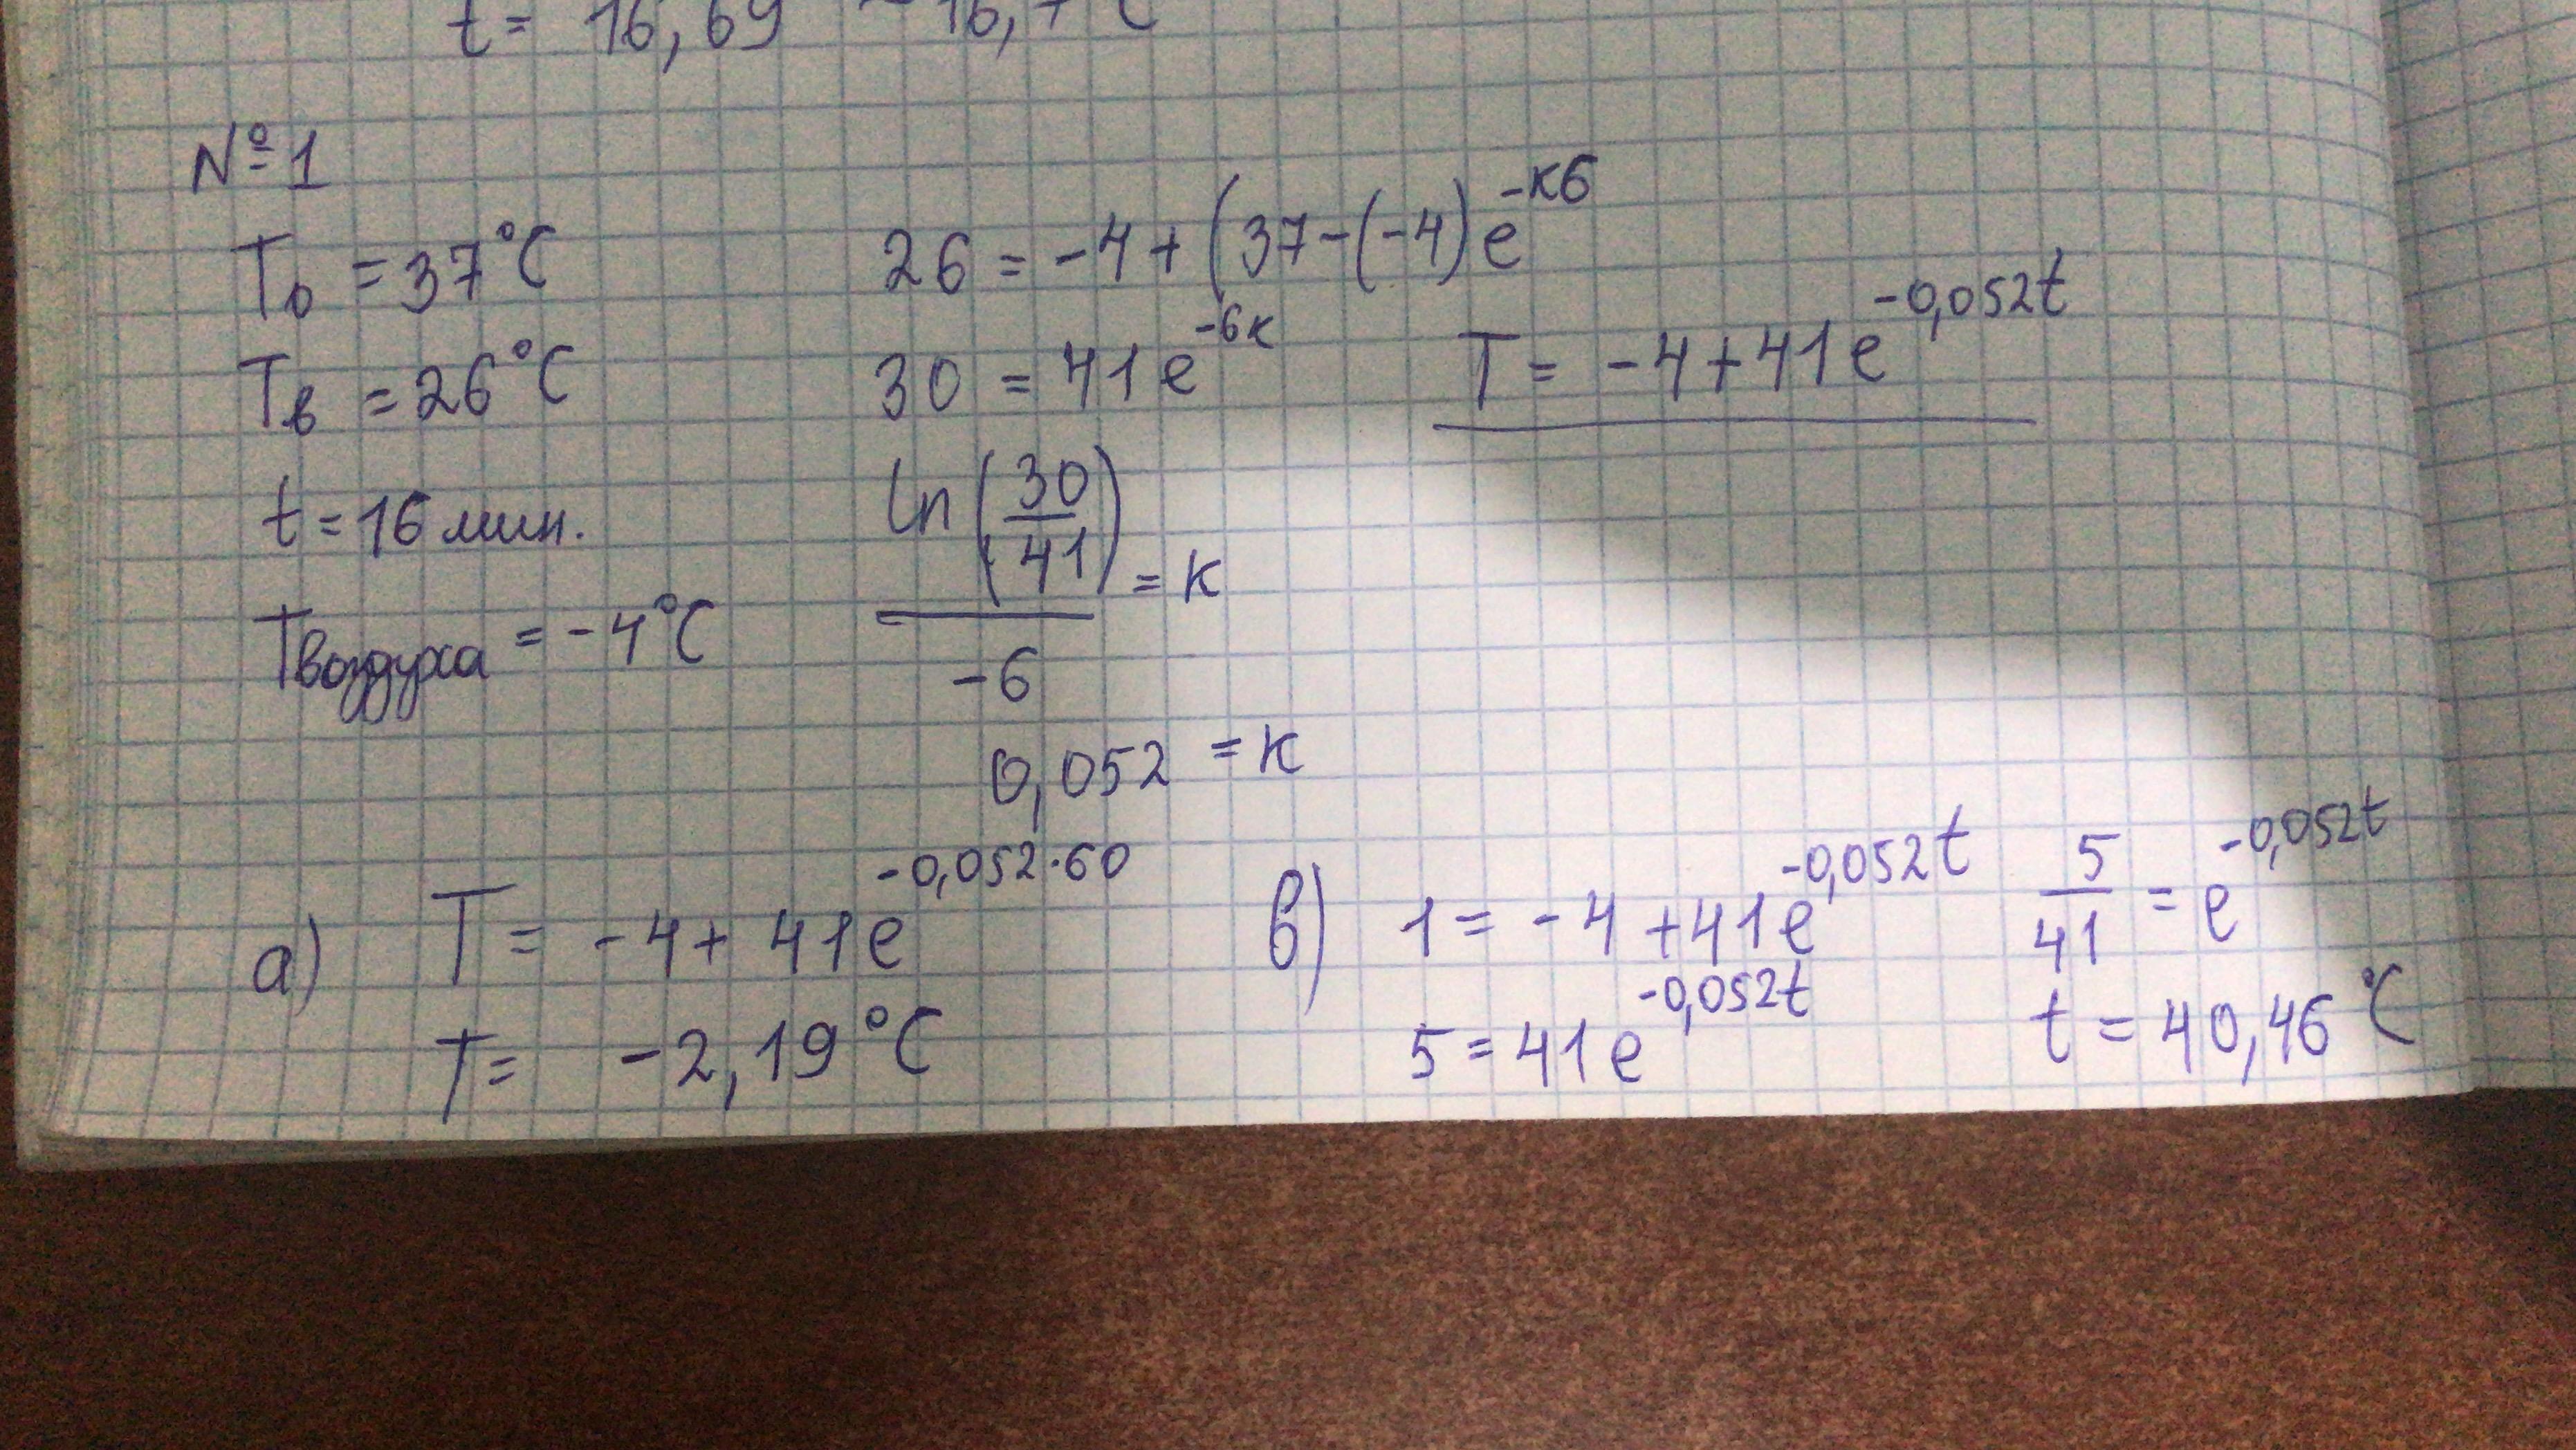 t = 16,69 ~ 16,7 °C
№1
T₀ = 37°C
Tв = 26°C
t = 16 мин.
Tвоздуха = -4°C
26 = -4 + (37-(-4)e^-к6
30 = 41e^-6к
ln(30/41)/-6 = к
0,052 = к
T = -4+41e^-0,052t
а) T = -4+ 41e^-0,052·60
T = -2,19°C
в) 1 = -4 +41e^-0,052t
5 = 41e^-0,052t
5/41 = e^-0,052t
t = 40,46°C